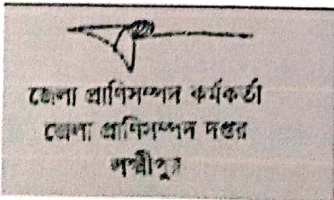 জেলা প্রাণিসম্পদ কর্মকর্তা
জেলা প্রাণিসম্পদ দপ্তর
লক্ষ্মীপুর